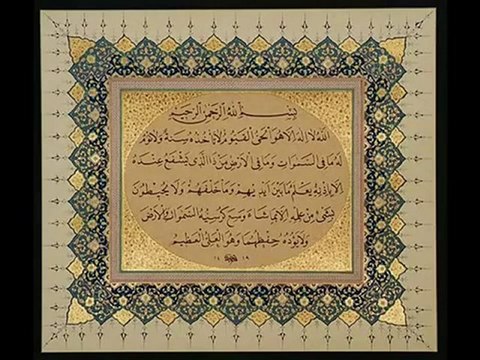 بِسْمِ اللّٰهِ الرَّحْمٰنِ الرَّحِيمِ
اَللّٰهُ لَا اِلٰهَ اِلَّا هُوَ الْحَىُّ الْقَيُّومُ لَا تَأْخُذُهُ سِنَةٌ وَلَا نَوْمٌ
لَهُ مَا فِى السَّمٰوَاتِ وَمَا فِى الْاَرْضِ مَنْ ذَا الَّذِى يَشْفَعُ عِنْدَهُ
اِلَّا بِاِذْنِهِ يَعْلَمُ مَا بَيْنَ اَيْدِيهِمْ وَمَا خَلْفَهُمْ وَلَا يُحِيطُونَ
بِشَىْءٍ مِنْ عِلْمِهِ اِلَّا بِمَا شَاءَ وَسِعَ كُرْسِيُّهُ السَّمٰوَاتِ وَالْاَرْضَ
وَلَا يَؤُدُهُ حِفْظُهُمَا وَهُوَ الْعَلِىُّ الْعَظِيمُ